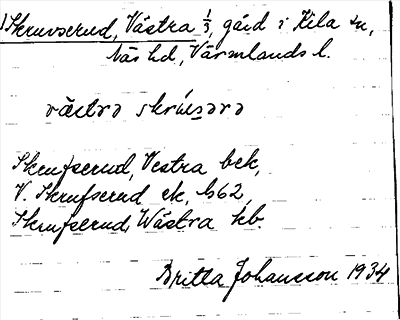 Skruvserud, Västra 1/3, gård i Kila sn,
Näs hd, Värmlands l.
västrə skrúsərə
Skrufserud, Vestra bek,
V. Skrufserud ek, G62,
Skrufserud, Wästra kb.
Britta Johansson 1934